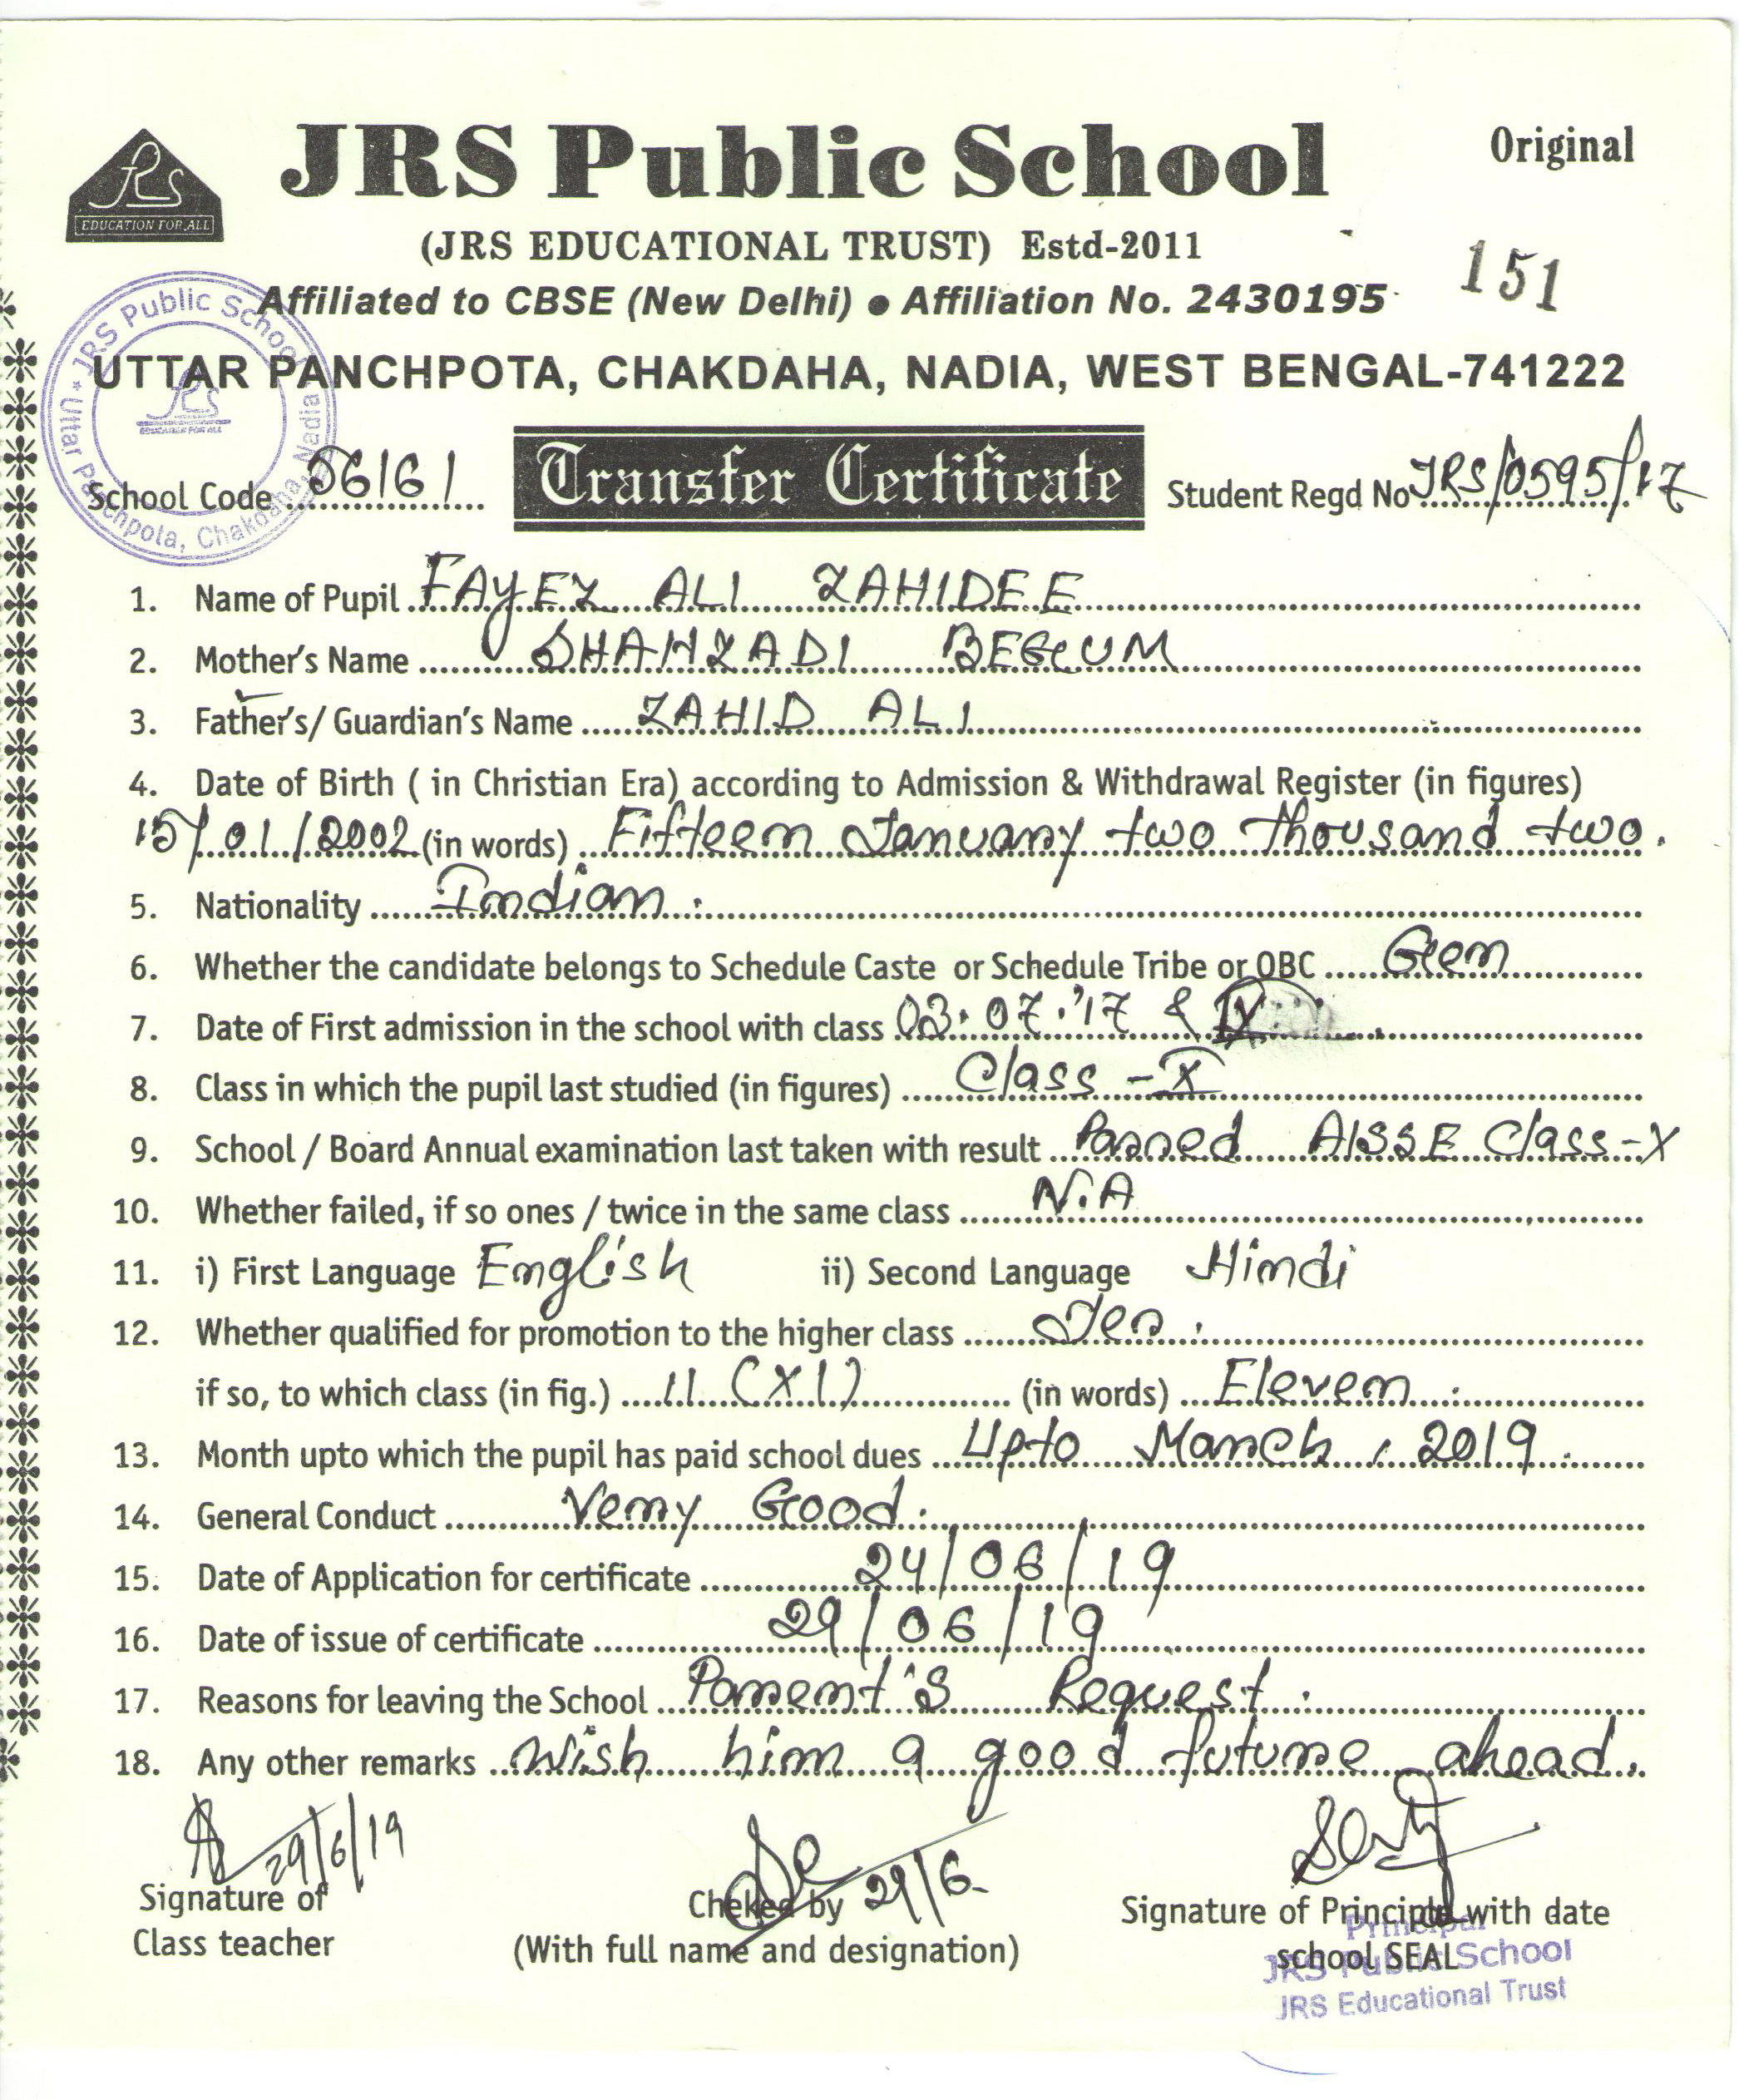 JRS Public School
Original
JRS
EDUCATION FOR ALL
(JRS EDUCATIONAL TRUST) Estd-2011
151
Affiliated to CBSE (New Delhi) ● Affiliation No. 2430195
UTTAR PANCHPOTA, CHAKDAHA, NADIA, WEST BENGAL-741222
JRS Public School * Uttar Panchpota, Chakdaha, Nadia
JRS
EDUCATION FOR ALL
School Code 56161 Transfer Certificate Student Regd No JRS/0595/17
1. Name of Pupil FAYEZ ALI ZAHIDEE
2. Mother's Name SHAHZADI BEGUM
3. Father's/ Guardian's Name ZAHID ALI
4. Date of Birth ( in Christian Era) according to Admission & Withdrawal Register (in figures)
15/01/2002 (in words) Fifteen January two thousand two.
5. Nationality Indian.
6. Whether the candidate belongs to Schedule Caste or Schedule Tribe or OBC Gen
7. Date of First admission in the school with class 03.07.'17 &
8. Class in which the pupil last studied (in figures) Class - X
9. School / Board Annual examination last taken with result Passed AISSE Class-X
10. Whether failed, if so ones / twice in the same class N.A
11. i) First Language English ii) Second Language Hindi
12. Whether qualified for promotion to the higher class Yes.
if so, to which class (in fig.) 11 (XI) (in words) Eleven.
13. Month upto which the pupil has paid school dues Upto March, 2019.
14. General Conduct Very Good.
15. Date of Application for certificate 24/06/19
16. Date of issue of certificate 29/06/19
17. Reasons for leaving the School Parent's Request.
18. Any other remarks Wish him a good future ahead.
29/6/19
29/6
Signature of
Class teacher
Cheked by
(With full name and designation)
Signature of Principle with date
school SEAL
Principal
JRS Public School
JRS Educational Trust